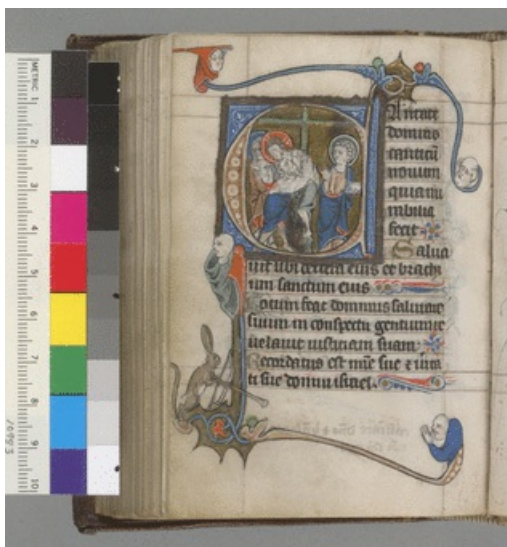 METRIC 1 2 3 4 5 6 7 8 9 10
antate
domino
canticũ
nouum
quia mi
rabilia
fecit
Salua
uit sibi dextera eius et brachi
um sanctum eius
otum fecit dominus salutare
suum in conspectu gentium re
uelauit iusticiam suam
ecordatus est mĩe sue et uita
ti sue domui israel